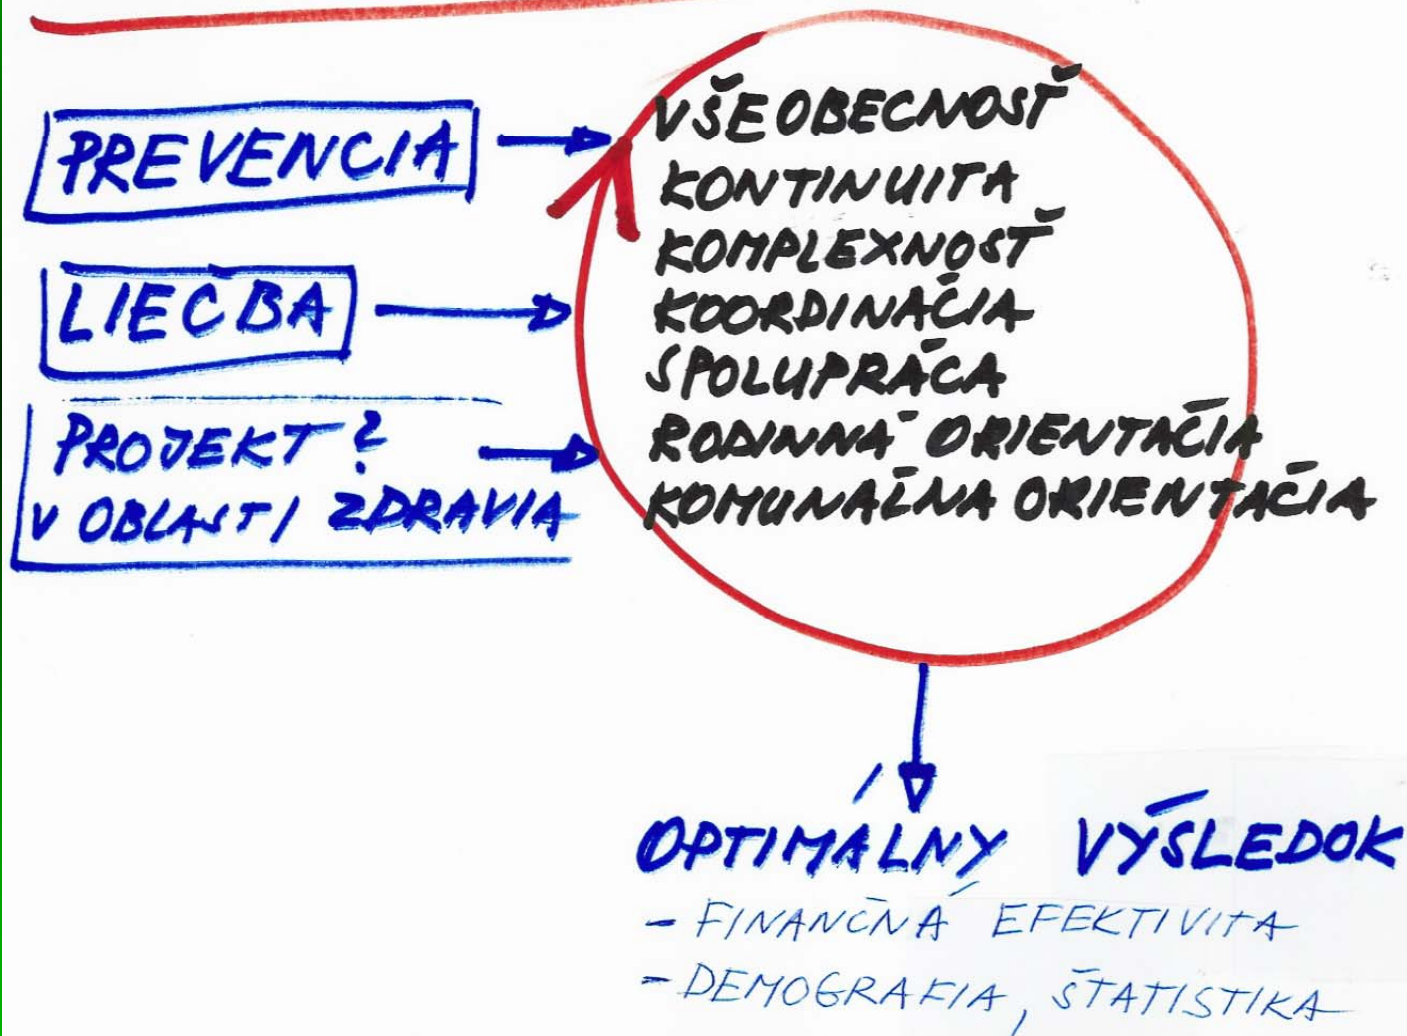 PREVENCIA
LIEČBA
PROJEKT?
V OBLASTI ZDRAVIA
VŠEOBECNOSŤ
KONTINUITA
KOMPLEXNOSŤ
KOORDINÁCIA
SPOLUPRÁCA
RODINNÁ ORIENTÁCIA
KOMUNÁLNA ORIENTÁCIA
OPTIMÁLNY VÝSLEDOK
- FINANČNÁ EFEKTIVITA
- DEMOGRAFIA, ŠTATISTIKA